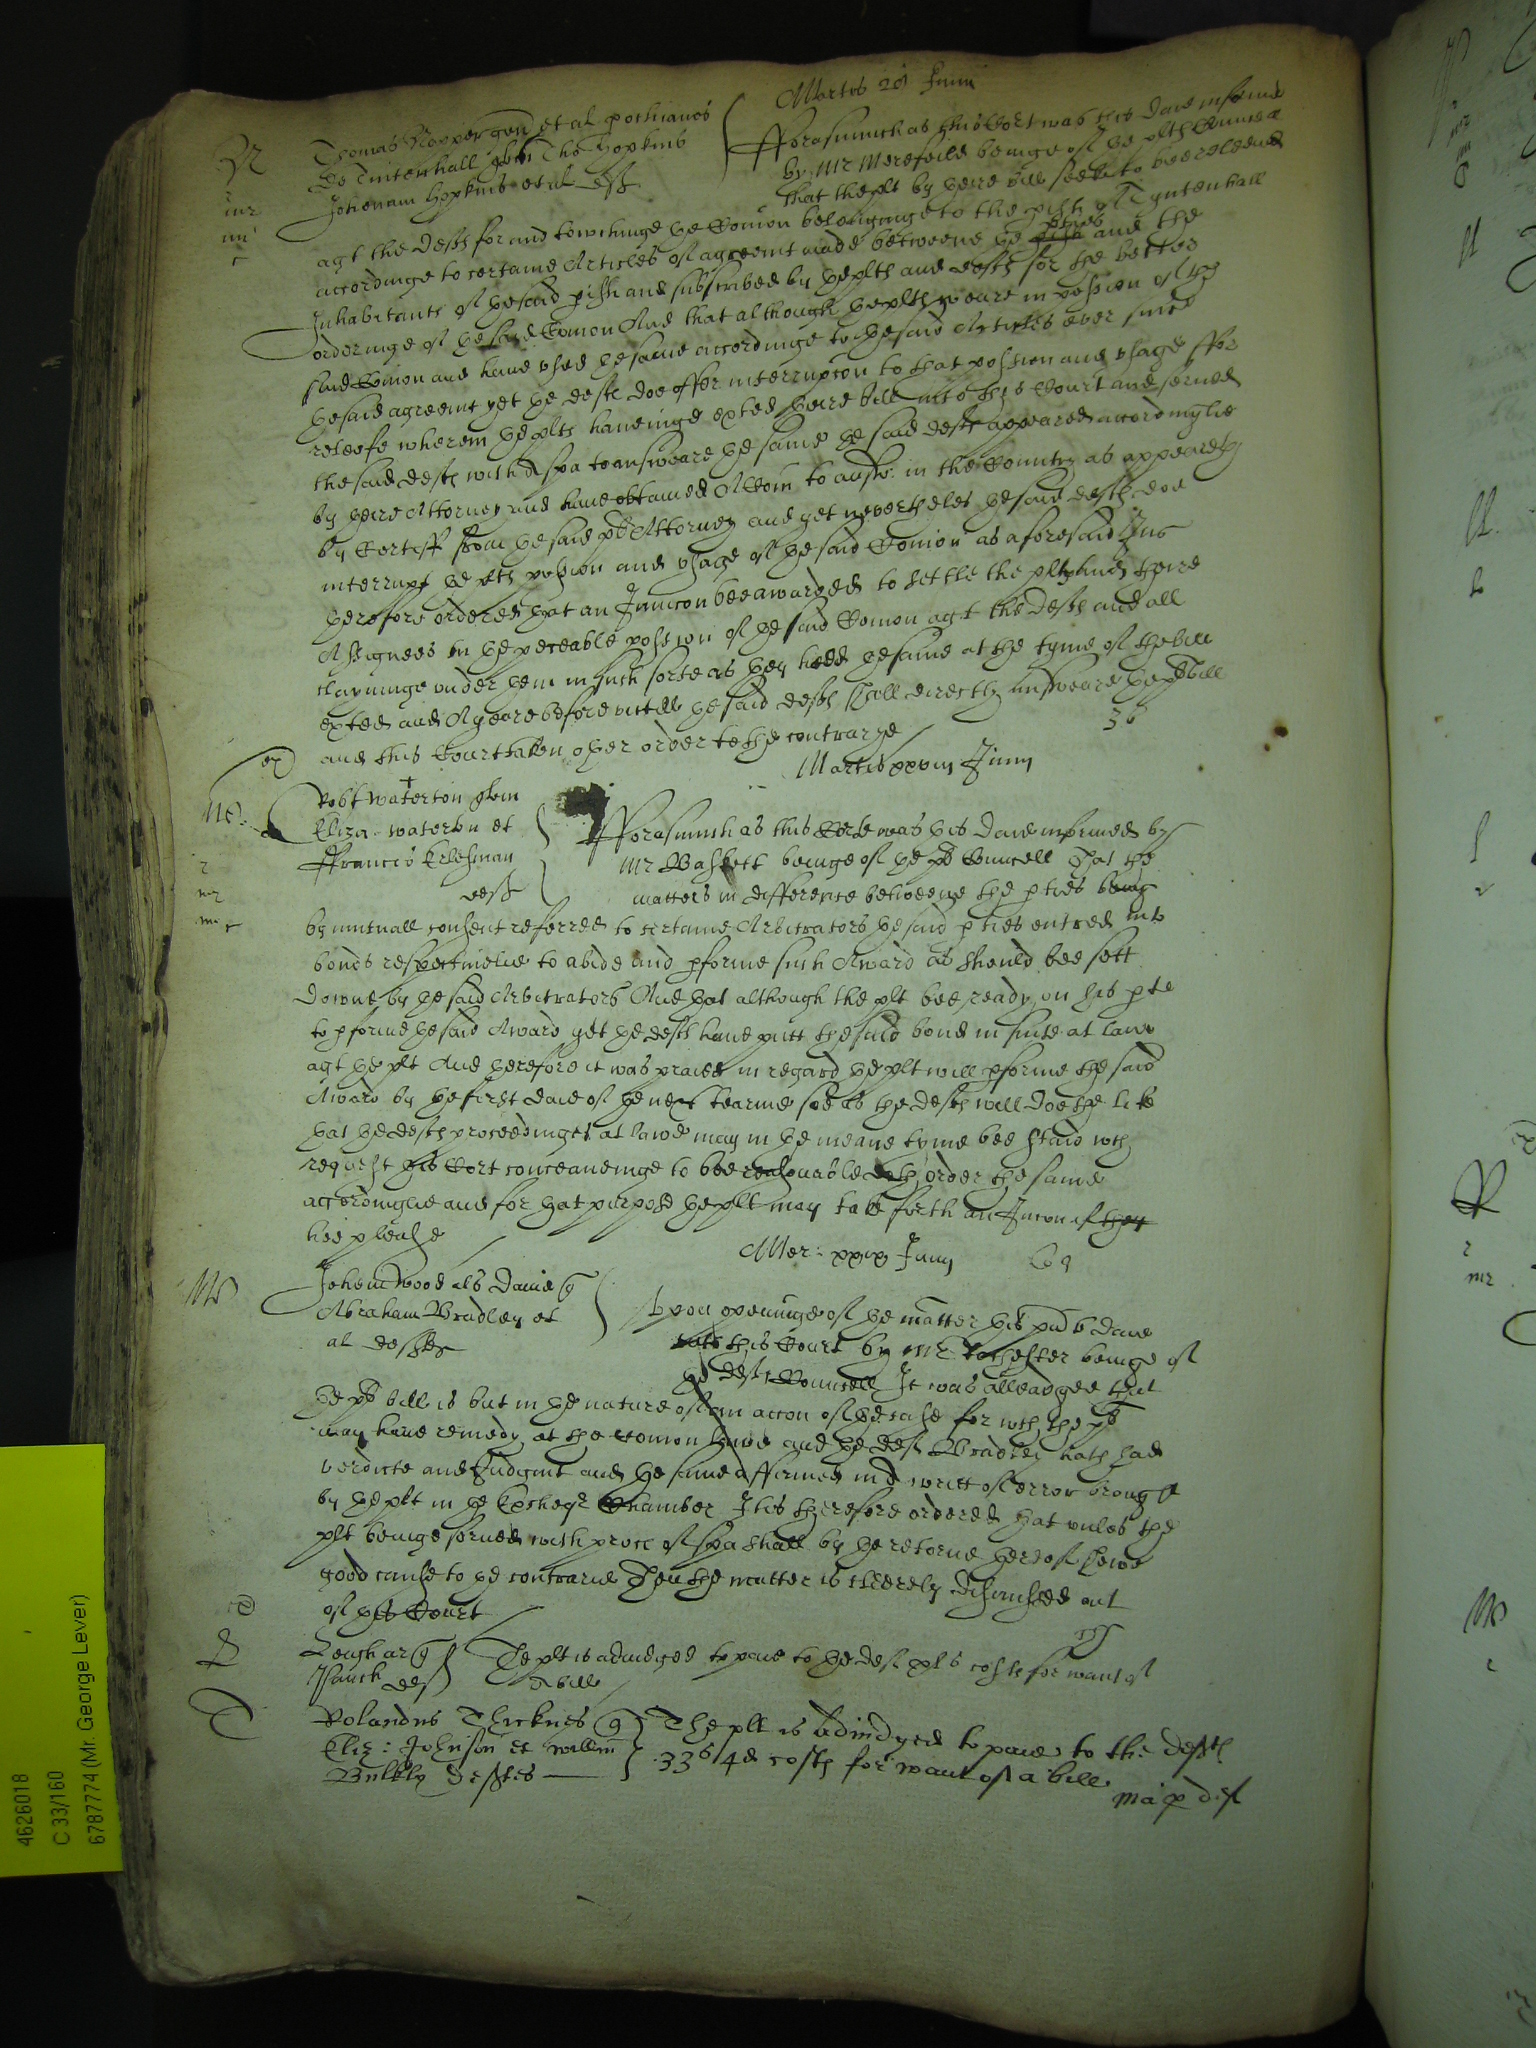 Martis 28 Junii
Thomas Roper gen et al
de Tintenhall Tho Hopkins
Johannam Hopkins et al deft
Fforasmuch as this Cort was this daie informed
by Mr Merefeild beinge of the plts Councell
that the plt by theire bill seeke to bee releeved
agt the defts for and towchinge the Comon belonginge to the pish of Tyntenhall
accordinge to certaine Articles of agreemt made betweene the pties and the
Inhabitants of the said pish and subscribed by the plts and defts for the better
orderinge of the said Comon And that although the plts weare in possion of the
said Comon and have used the same accordinge to the said Articles ever since
the said agreemt yet the defts doe offer interrupcon to that possion and usage ffor
releefe wherein the plts haveinge exted theire bill into this Court and served
the said defts with a spa to answeare the same the said defts appeared accordinglie
by theire Attorney and have obtained A Com to answ: in the Country as appeareth
by Certiff from the said Attorney and yet neverthelesse the said defts doe
interrupt the plts possion and usage of the said Comon as aforesaid It is
therefore ordered that an Iniuncon bee awarded to settle the plts and theire
Assignees in the peceable possion of the said Comon agt the defts and all
clayminge under them in such sorte as they held the same at the tyme of the bill
exted and A yeare before untill the said defts shall directly answeare the pts bill
and this Court taken other order to the contrarye
36
Martis xxviii Junii
Robt Waterton
Eliza Waterton et
Ffrancis
deft
Fforasmuch as this Corte was this daie informed by
Mr Baskett beinge of the pts Councell That the
matters in difference betweene the pties beinge
by mutuall consent referred to certaine Arbitrators the said pties entred into
bonds respectivelie to abide and pforme such Award as should bee sett
downe by the said Arbitrators And that although the plt bee ready on his pte
to pforme the said Award yet the defts have putt the said bond in suite at lawe
agt the plt And therefore it was praied in regard the plt will pforme the said
Award by the first daie of the next tearme soe as the defts will doe the like
that the defts proceedinges at lawe may in the meane tyme bee staid wch
request this Cort conceaveinge to bee reasonable doth order the same
accordinglie and for that purpose the plt may take forth an Iniuncon if they
hee please
Mer: xxix Junii
John Wood als Davie
Abraham Bradley et
al deftes
Upon openinge of the matter this pnte daie
unto this Court by Mr Tochester beinge of
the defts Councell It was alleadged that
the pts bill is but in the nature of an accon of the case for wch the pt
may have remedy at the Comon lawe and the deft Bradley hath had
verdicte and Judgmt and the same affirmed in a writt of error brought
by the plt in the Excheqr Chamber It is therefore ordered that unles the
plt beinge served with proces of spa shall by the retorne thereof shewe
good cause to the contrarie Then the matter is cleerely dismissed out
of this Court
Leigh ar
deft
The plt is adiudged to paie to the deft costs for want of
A bill
Rolandus Thicknes
Eliz: Johnson et Willm
Bulkly deftes
The plt is adiudged to paie to the defts
33s 4d costs for want of a bill
4626018
C 33/160
6787774 (Mr. George Lever)